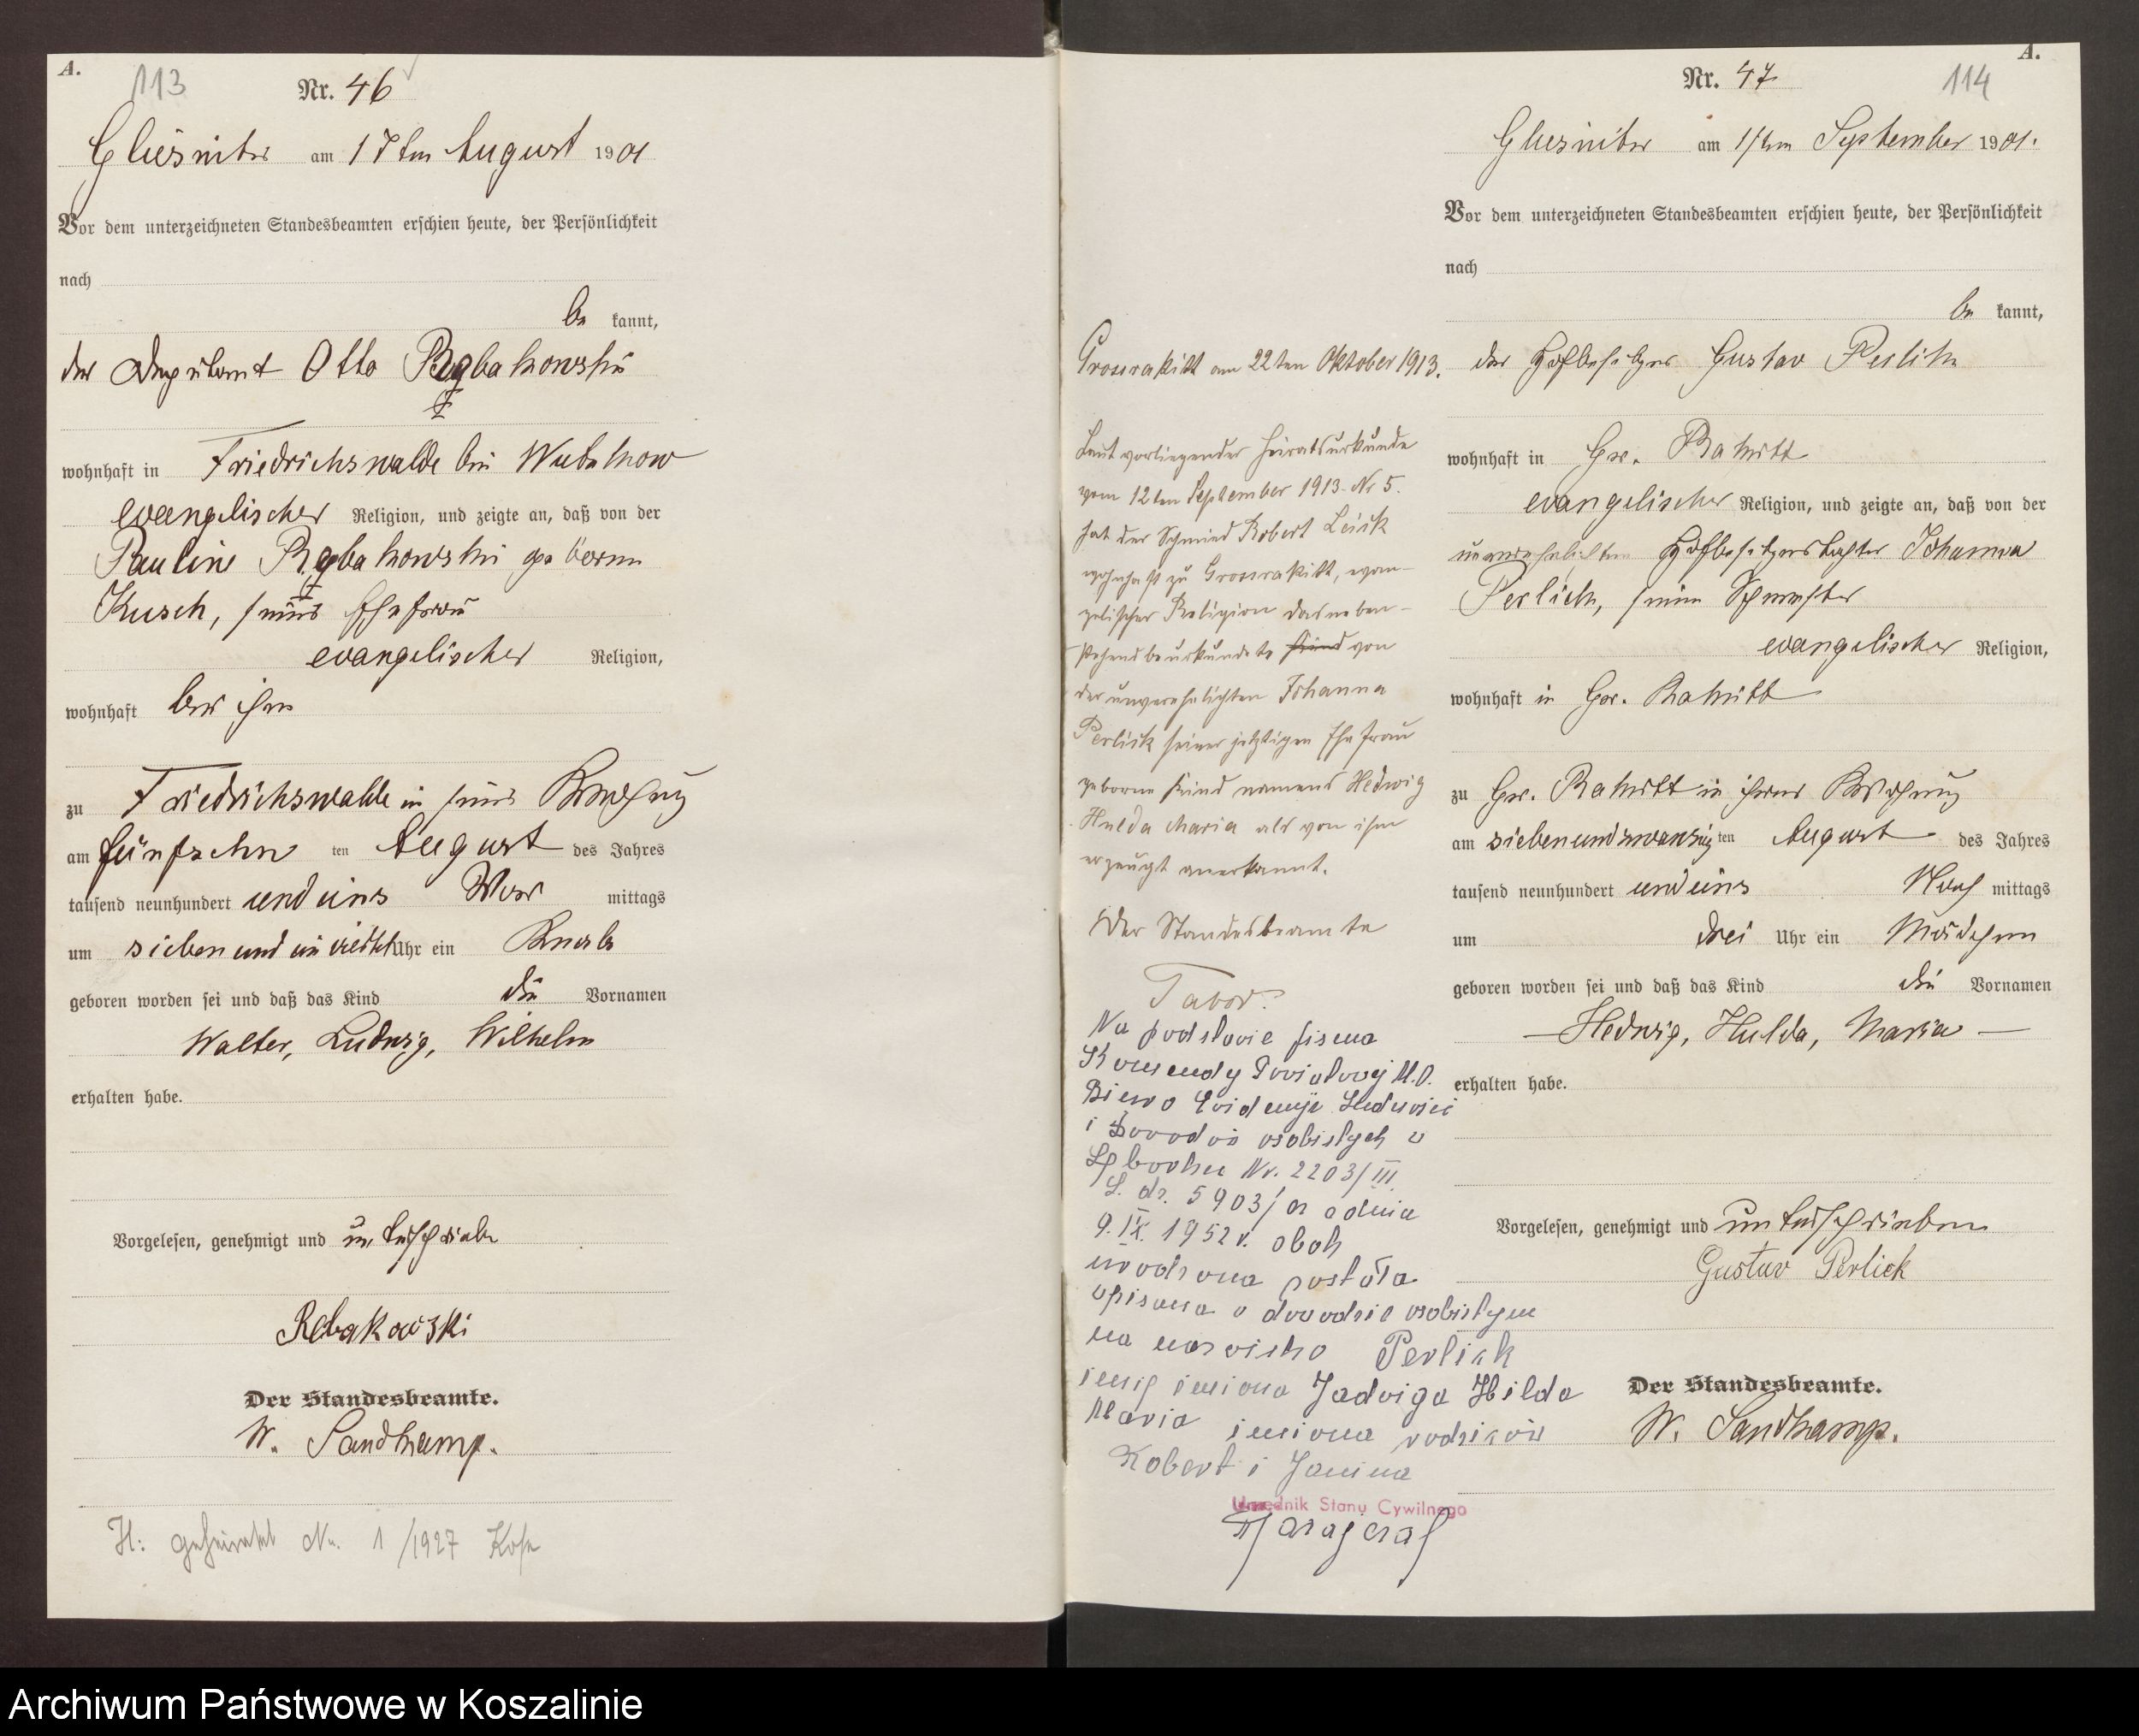 A.
113
Nr. 46
Gliesnitz am 17ten August 1901
Vor dem unterzeichneten Standesbeamten erschien heute, der Persönlichkeit
nach
be kannt,
der Deputant Otto
wohnhaft in Friedrichswalde bei
evangelischer Religion, und zeigte an, daß von der
Pauline geborene
Kusch, seine Ehefrau
evangelischer Religion,
wohnhaft bei ihm
zu Friedrichswalde in seiner Wohnung
am fünfzehn ten August des Jahres
tausend neunhundert und eins Vor mittags
um sieben und ein viertel Uhr ein Knabe
geboren worden sei und daß das Kind die Vornamen
Walter, Ludwig, Wilhelm
erhalten habe.
Vorgelesen, genehmigt und unterschrieben
Rebakowski
Der Standesbeamte.
W. Sandkamp.
H: geheiratet Nr. 1/1927
A.
Nr. 47
114
Gliesnitz am 1ten September 1901.
Vor dem unterzeichneten Standesbeamten erschien heute, der Persönlichkeit
nach
be kannt,
der Hofbesitzer Gustav Perlick
wohnhaft in Gr. Rakitt
evangelischer Religion, und zeigte an, daß von der
unverehelichten Hofbesitzerstochter Johanna
Perlick, seiner Schwester
evangelischer Religion,
wohnhaft in Gr. Rakitt
zu Gr. Rakitt in ihrer Wohnung
am siebenundzwanzig ten August des Jahres
tausend neunhundert und eins Nach mittags
um drei Uhr ein Mädchen
geboren worden sei und daß das Kind die Vornamen
— Hedwig, Hulda, Maria —
erhalten habe.
Vorgelesen, genehmigt und unterschrieben
Gustav Perlick
Der Standesbeamte.
W. Sandkamp.
Grossrakitt am 22ten Oktober 1913.
Laut vorliegender Heiratsurkunde
vom 12ten September 1913 Nr 5.
hat der Schmied Robert Leick
wohnhaft zu Grossrakitt, evan-
gelischer Religion das neben-
stehend beurkundete Kind von
der unverehelichten Johanna
Perlick seiner jetztigen Ehefrau
geborne Kind namens Hedwig
Hulda Maria als von ihm
erzeugt anerkannt.
Der Standesbeamte
Tabor.
Na podstawie pisma
Komendy Powiatowej M.O.
Biuro Ewidencji Ludności
i Dowodów osobistych w
Lęborku Nr. 2203/III
L. dz. 5903/ z dnia
9.IX.1952r. obok
urodzona została
wpisana w dowodzie osobistym
na nazwisko Perlick
imię imiona Jadwiga Hilda
Maria imiona rodziców
Robert i Janina
Urzędnik Stanu Cywilnego
Archiwum Państwowe w Koszalinie